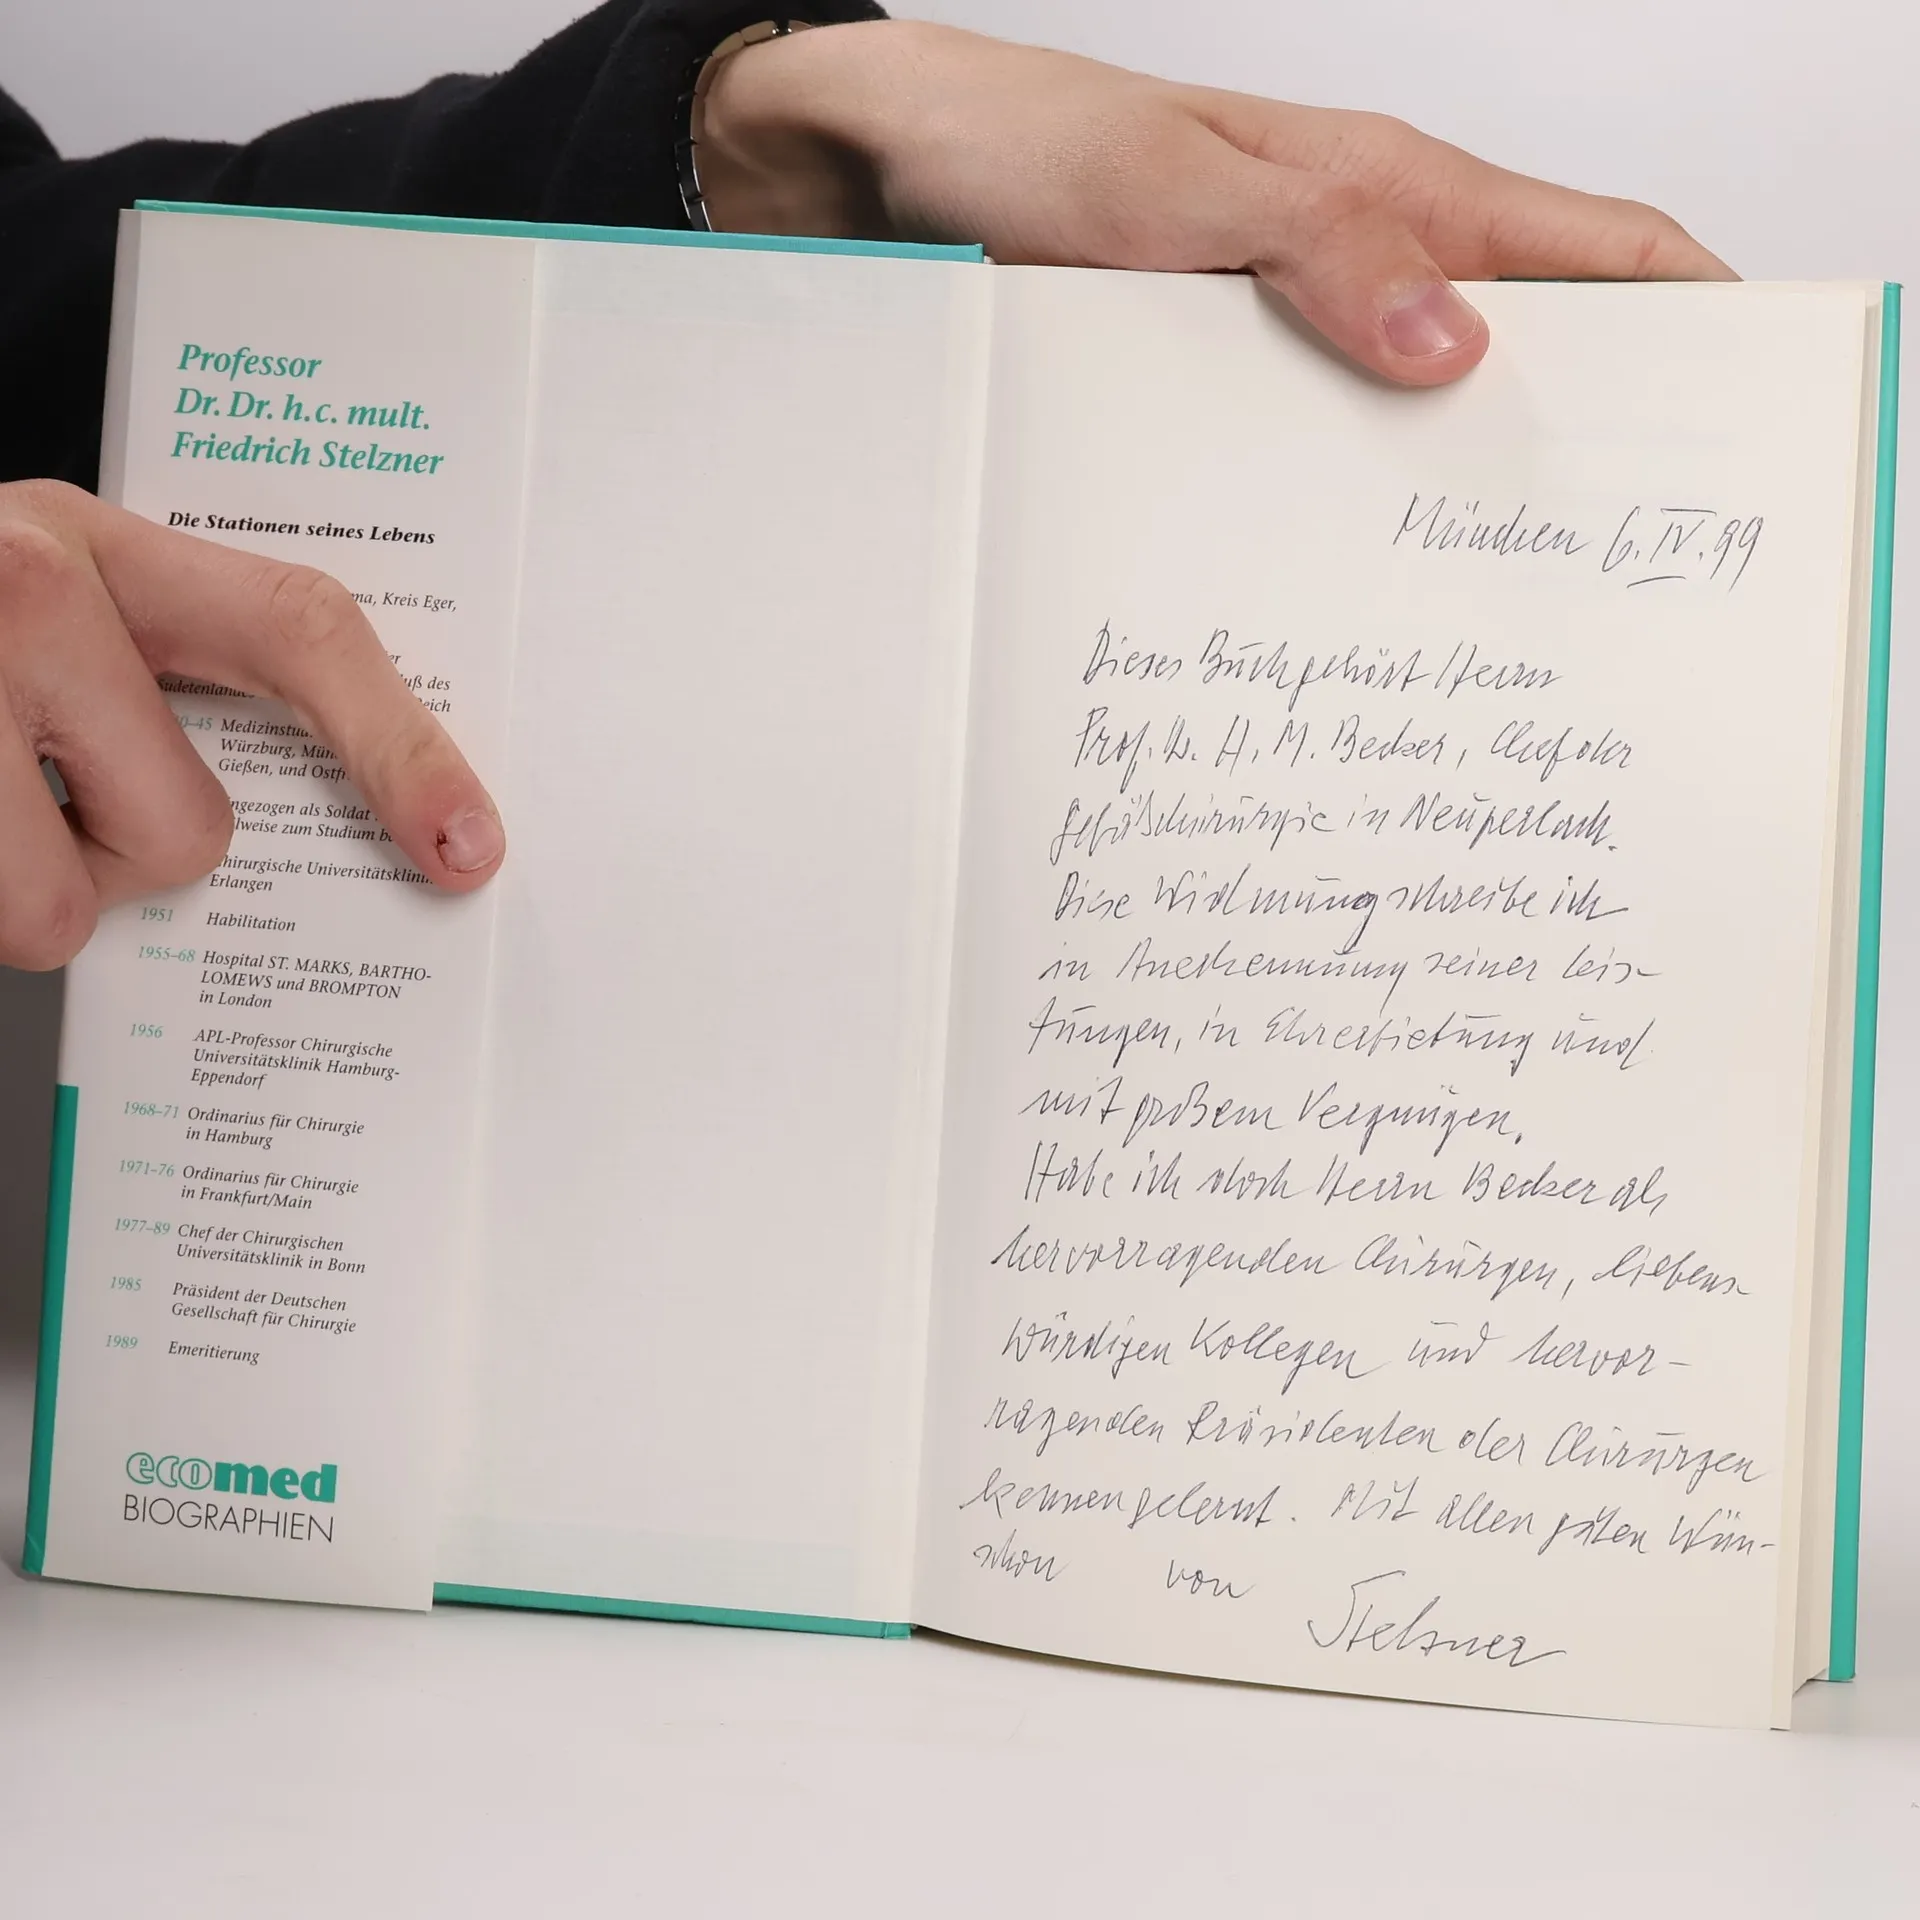 Professor
Dr. Dr. h.c. mult.
Friedrich Stelzner
Die Stationen seines Lebens
Kreis Eger,
des
Würzburg,
Gießen, und
als Soldat
zum Studium
Erlangen
1951 Habilitation
1955–68 Hospital ST. MARKS, BARTHO-
LOMEWS und BROMPTON
in London
1956 APL-Professor Chirurgische
Universitätsklinik Hamburg-
Eppendorf
1968–71 Ordinarius für Chirurgie
in Hamburg
1971–76 Ordinarius für Chirurgie
in Frankfurt/Main
1977–89 Chef der Chirurgischen
Universitätsklinik in Bonn
1985 Präsident der Deutschen
Gesellschaft für Chirurgie
1989 Emeritierung
ecomed
BIOGRAPHIEN
München 6.IV.99
Dieses Buch gehört Herrn
Prof. Dr. H. M. Becker, Chef der
Gefäßchirurgie in Neuperlach.
Diese Widmung schreibe ich
in Anerkennung seiner Leis-
tungen, in Ehrerbietung und
mit großem Vergnügen.
Habe ich doch Herrn Becker als
hervorragenden Chirurgen, liebens-
würdigen Kollegen und hervor-
ragenden Präsidenten der Chirurgen
kennengelernt. Mit allen guten Wün-
schen von
Stelzner